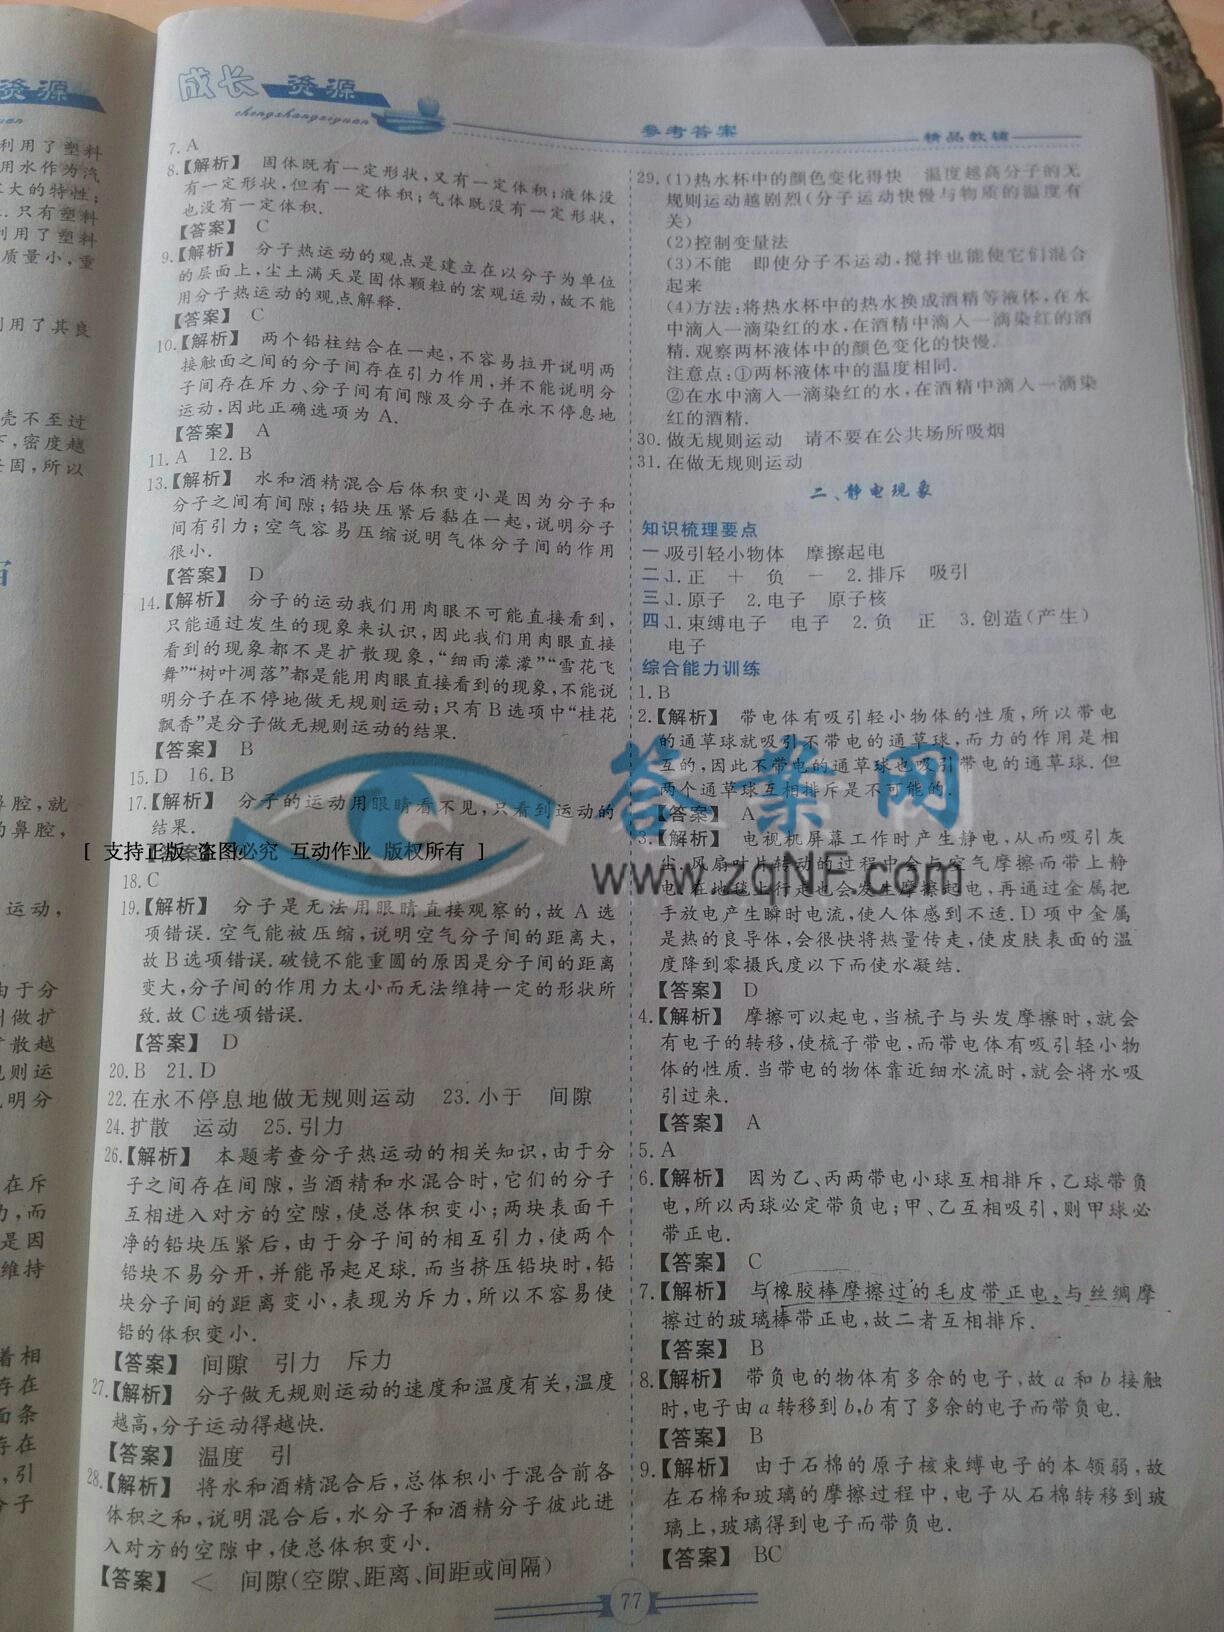 成长 资源
chengzhangziyuan
参考答案
精品教辅
7. A
8.【解析】 固体既有一定形状,又有一定体积;液体没
有一定形状,但有一定体积;气体既没有一定形状,
也没有一定体积.
【答案】 C
9.【解析】 分子热运动的观点是建立在以分子为单位
的层面上,尘土满天是固体颗粒的宏观运动,故不能
用分子热运动的观点解释.
【答案】 C
10.【解析】 两个铅柱结合在一起,不容易拉开说明两
接触面之间的分子间存在引力作用,并不能说明分
子间存在斥力、分子间有间隙及分子在永不停息地
运动,因此正确选项为 A.
【答案】 A
11. A 12. B
13.【解析】 水和酒精混合后体积变小是因为分子和
分子之间有间隙;铅块压紧后黏在一起,说明分子
间有引力;空气容易压缩说明气体分子间的作用
很小.
【答案】 D
14.【解析】 分子的运动我们用肉眼不可能直接看到,
只能通过发生的现象来认识,因此我们用肉眼直接
看到的现象都不是扩散现象,“细雨濛濛”“雪花飞
舞”“树叶凋落”都是能用肉眼直接看到的现象,不能说
明分子在不停地做无规则运动;只有 B 选项中“桂花
飘香”是分子做无规则运动的结果.
【答案】 B
15. D 16. B
17.【解析】 分子的运动用眼睛看不见,只看到运动的
结果.
【答案】
18. C
19.【解析】 分子是无法用眼睛直接观察的,故 A 选
项错误.空气能被压缩,说明空气分子间的距离大,
故 B 选项错误.破镜不能重圆的原因是分子间的距离
变大,分子间的作用力太小而无法维持一定的形状所
致.故 C 选项错误.
【答案】 D
20. B 21. D
22. 在永不停息地做无规则运动 23. 小于 间隙
24. 扩散 运动 25. 引力
26.【解析】 本题考查分子热运动的相关知识,由于分
子之间存在间隙,当酒精和水混合时,它们的分子
互相进入对方的空隙,使总体积变小;两块表面干
净的铅块压紧后,由于分子间的相互引力,使两个
铅块不易分开,并能吊起足球.而当挤压铅块时,铅
块分子间的距离变小,表现为斥力,所以不容易使
铅的体积变小.
【答案】 间隙 引力 斥力
27.【解析】 分子做无规则运动的速度和温度有关,温度
越高,分子运动得越快.
【答案】 温度 引
28.【解析】 将水和酒精混合后,总体积小于混合前各
体积之和,说明混合后,水分子和酒精分子彼此进
入对方的空隙中,使总体积变小.
【答案】 < 间隙(空隙、距离、间距或间隔)
29. (1)热水杯中的颜色变化得快 温度越高分子的无
规则运动越剧烈(分子运动快慢与物质的温度有
关)
(2)控制变量法
(3)不能 即使分子不运动,搅拌也能使它们混合
起来
(4)方法:将热水杯中的热水换成酒精等液体,在水
中滴入一滴染红的水,在酒精中滴入一滴染红的酒
精.观察两杯液体中的颜色变化的快慢.
注意点:①两杯液体中的温度相同.
②在水中滴入一滴染红的水,在酒精中滴入一滴染
红的酒精.
30. 做无规则运动 请不要在公共场所吸烟
31. 在做无规则运动
二、静电现象
知识梳理要点
一、吸引轻小物体 摩擦起电
二、1. 正 + 负 − 2. 排斥 吸引
三、1. 原子 2. 电子 原子核
四、1. 束缚电子 电子 2. 负 正 3. 创造(产生)
电子
综合能力训练
1. B
2.【解析】 带电体有吸引轻小物体的性质,所以带电
的通草球就吸引不带电的通草球,而力的作用是相
互的,因此不带电的通草球也吸引带电的通草球.但
两个通草球互相排斥是不可能的.
【答案】 A
3.【解析】 电视机屏幕工作时产生静电,从而吸引灰
尘.风扇叶片转动的过程中会与空气摩擦而带上静
电.在地毯上行走也会发生摩擦起电,再通过金属把
手放电产生瞬时电流,使人体感到不适.D 项中金属
是热的良导体,会很快将热量传走,使皮肤表面的温
度降到零摄氏度以下而使水凝结.
【答案】 D
4.【解析】 摩擦可以起电,当梳子与头发摩擦时,就会
有电子的转移,使梳子带电,而带电体有吸引轻小物
体的性质.当带电的物体靠近细水流时,就会将水吸
引过来.
【答案】 A
5. A
6.【解析】 因为乙、丙两带电小球互相排斥,乙球带负
电,所以丙球必定带负电;甲、乙互相吸引,则甲球必
带正电.
【答案】 C
7.【解析】 与橡胶棒摩擦过的毛皮带正电,与丝绸摩
擦过的玻璃棒带正电,故二者互相排斥.
【答案】 B
8.【解析】 带负电的物体有多余的电子,故 a 和 b 接触
时,电子由 a 转移到 b,b 有了多余的电子而带负电.
【答案】 B
9.【解析】 由于石棉的原子核束缚电子的本领弱,故
在石棉和玻璃的摩擦过程中,电子从石棉转移到玻
璃上,玻璃得到电子而带负电.
【答案】 BC
77
答案网
www.zqNF.com
[ 支持正版 盗图必究 互动作业 版权所有 ]